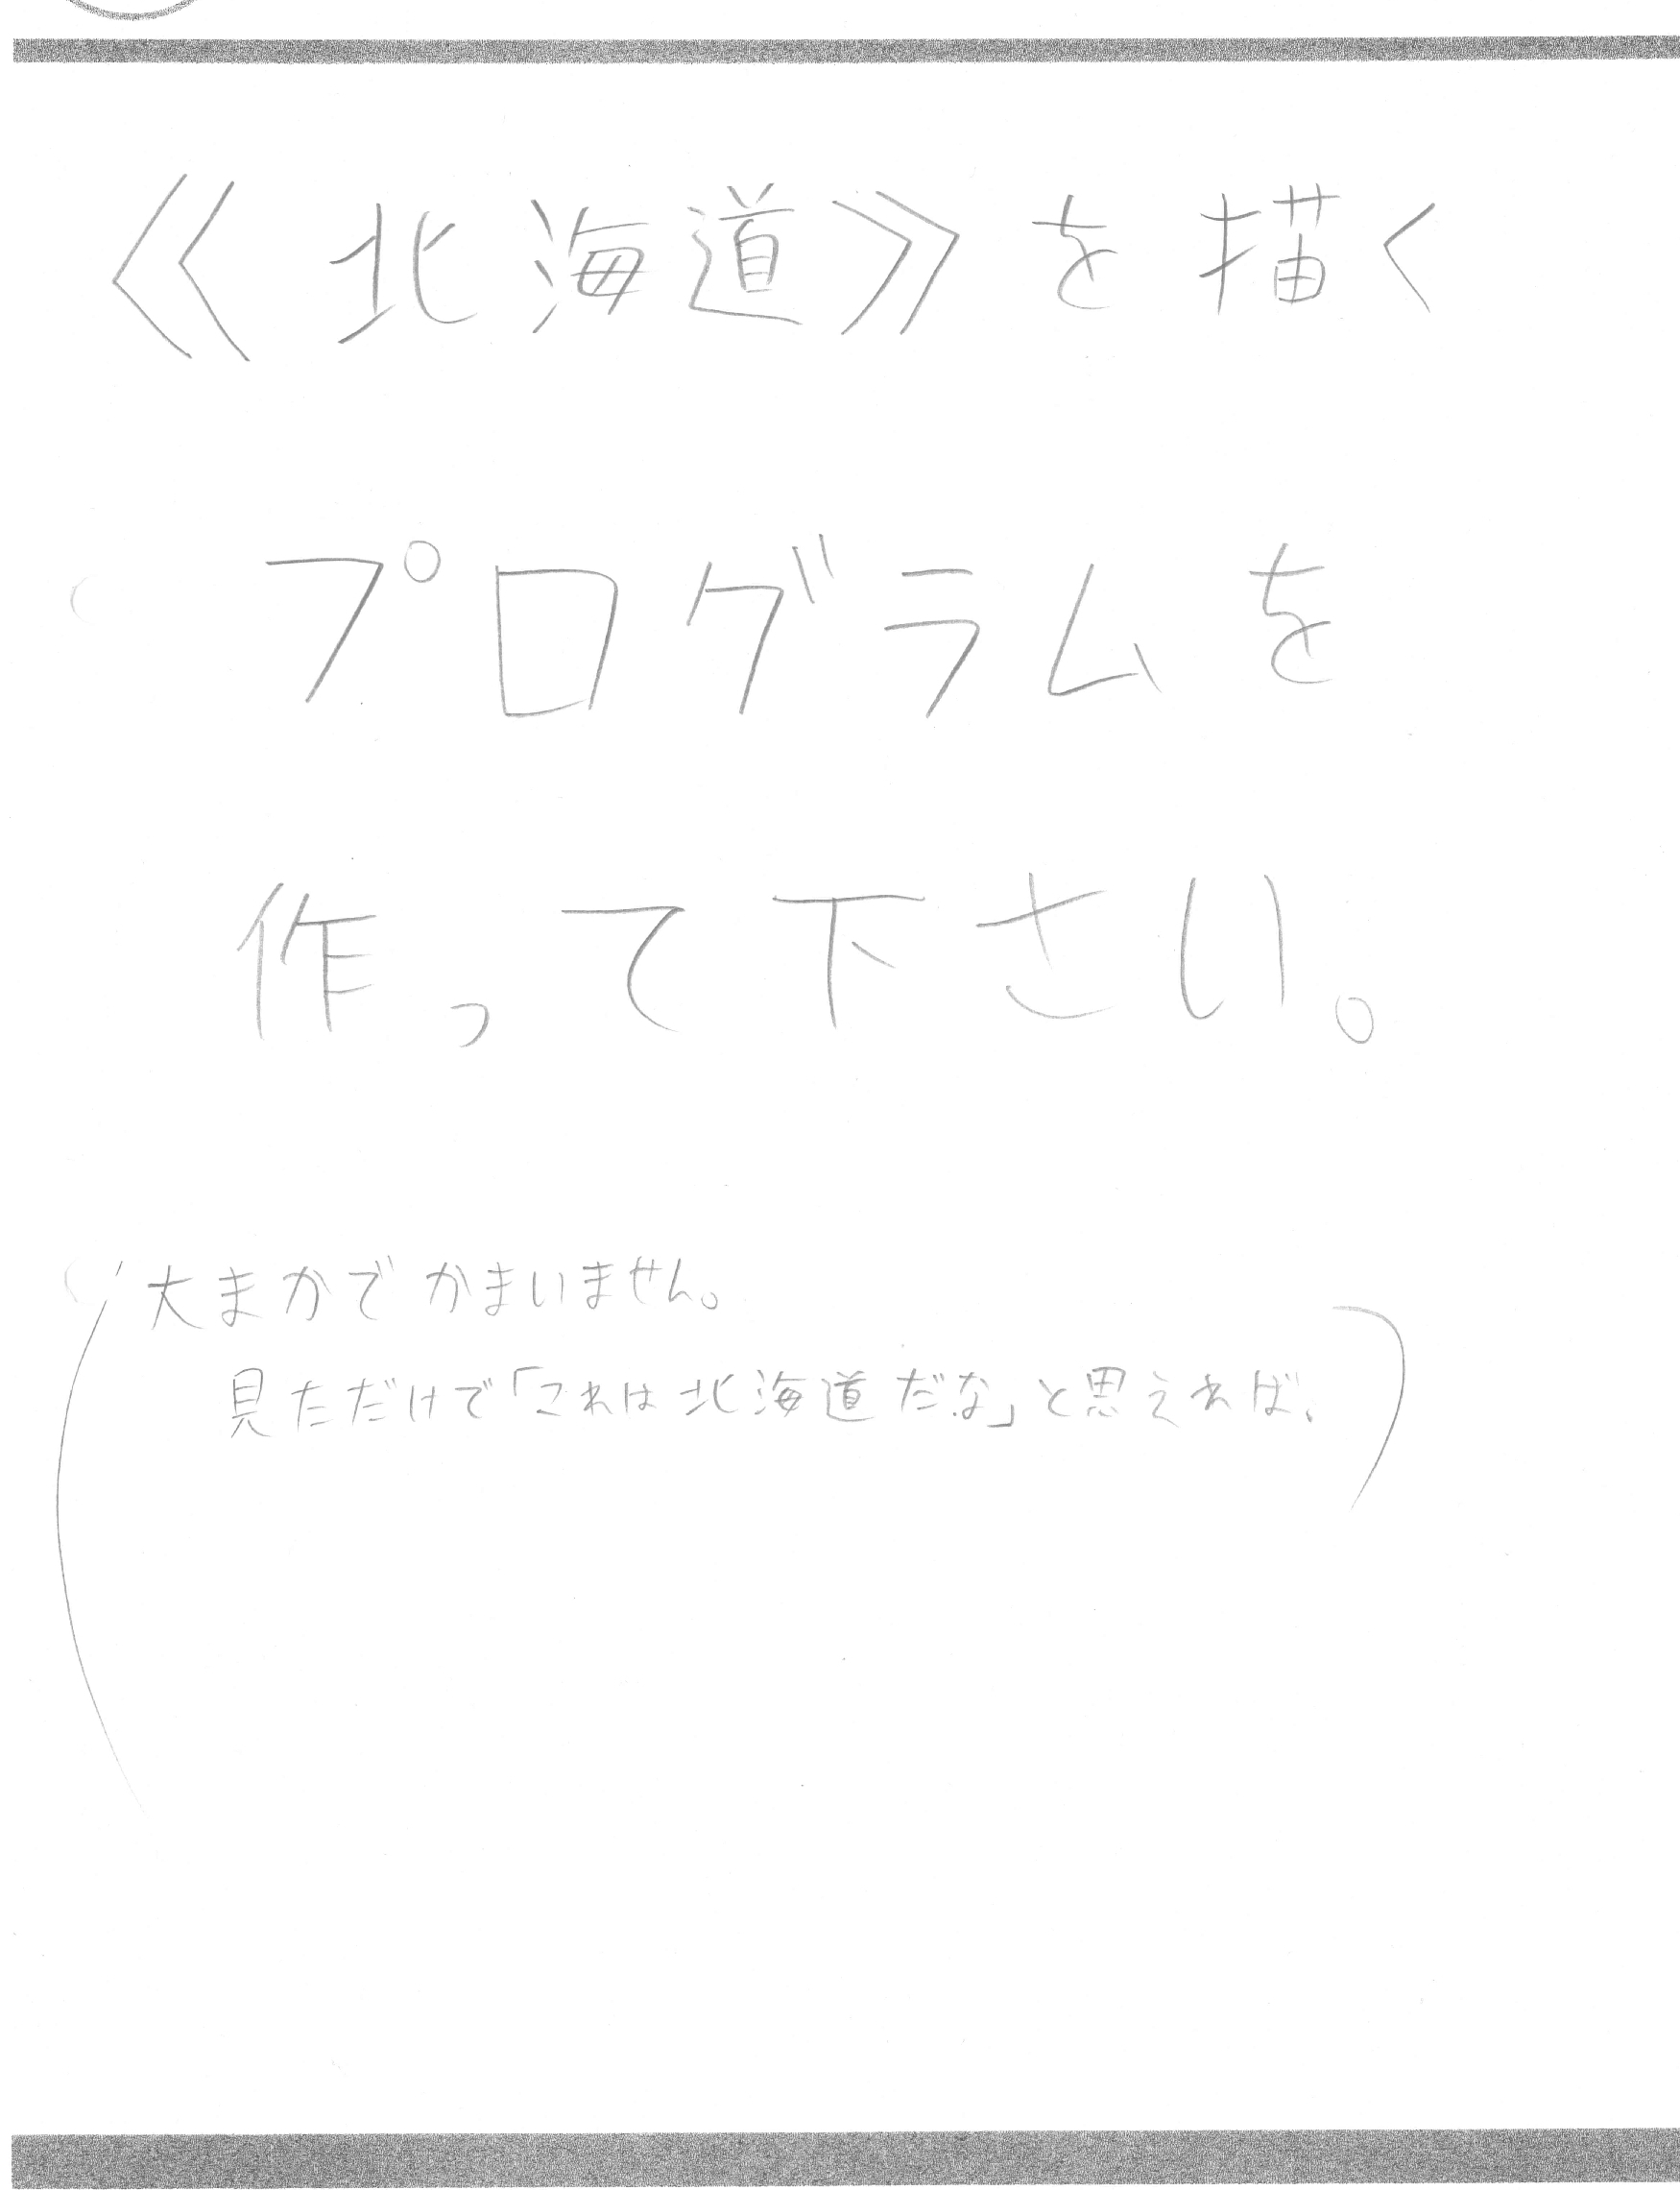 《北海道》を描く
プログラムを
作って下さい。
(大まかでかまいません。
見ただけで「これは北海道だな」と思えれば、)